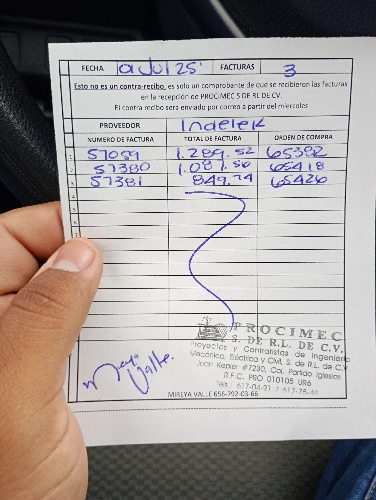 FECHA Jul 25' FACTURAS 3
Esto no es un contra-recibo, es solo un comprobante de que se recibieron las facturas
en la recepción de PROCIMEC S DE RL DE CV.
El contra recibo será enviado por correo a partir del miercoles
PROVEEDOR Indelek
NUMERO DE FACTURA TOTAL DE FACTURA ORDEN DE COMPRA
1 57059 1.289.52 65382
2 57380 1.087.50 65418
3 57381 849.74 65426
4
5
6
7
PROCIMEC
S. DE R.L. DE C.V.
Proyectos y Contratistas de Ingeniería
Mecánica, Eléctrica y Civil, S. de R.L. de C.V.
Juan Kepler #7230, Col. Partido Iglesias
R.F.C. PRO 010105 UR6
Tels.: 617-04-21 / 617-75-
Valle.
MIREYA VALLE 656-792-03-66